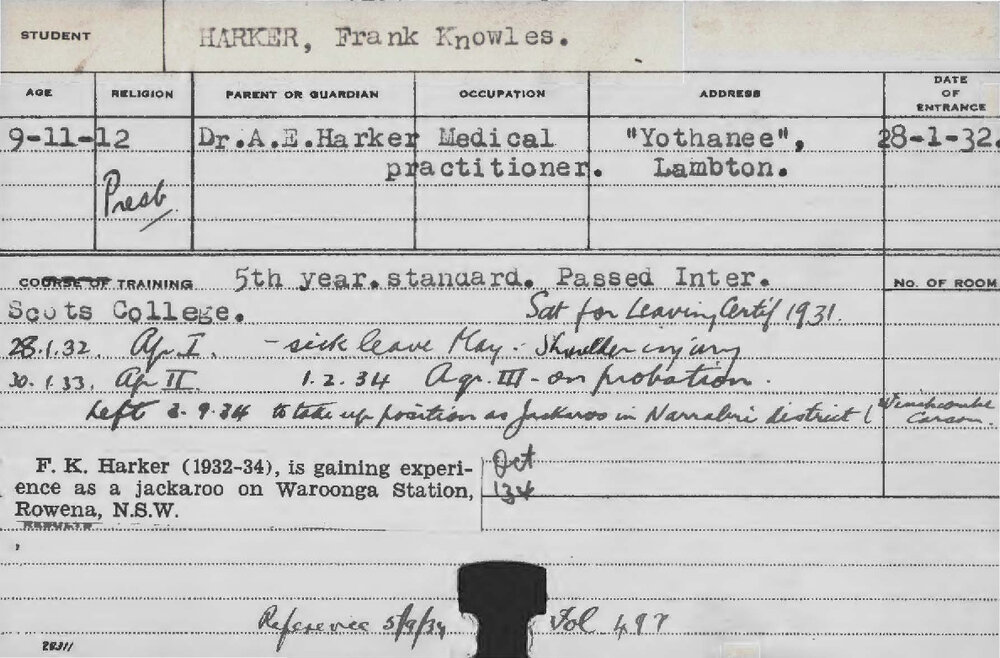 STUDENT HARKER, Frank Knowles.
AGE RELIGION PARENT OR GUARDIAN OCCUPATION ADDRESS DATE OF ENTRANCE
9-11-12 Dr.A.E.Harker Medical "Yothanee", 28-1-32.
practitioner. Lambton.
Presb
COURSE OF TRAINING 5th year.standard. Passed Inter. NO. OF ROOM
Scots College. Sat for Leaving Certif 1931.
28.1.32. Agr I. - sick leave May - Shoulder injury
30.1.33. Agr II 1.2.34 Agr. III - on probation.
Left 3.9.34 to take up position as Jackaroo in Narrabri district (Winchcombe
Carson.
F. K. Harker (1932-34), is gaining experi-
ence as a jackaroo on Waroonga Station,
Rowena, N.S.W.
Oct
134
RESULTS
Reference 5/9/34 Fol 497